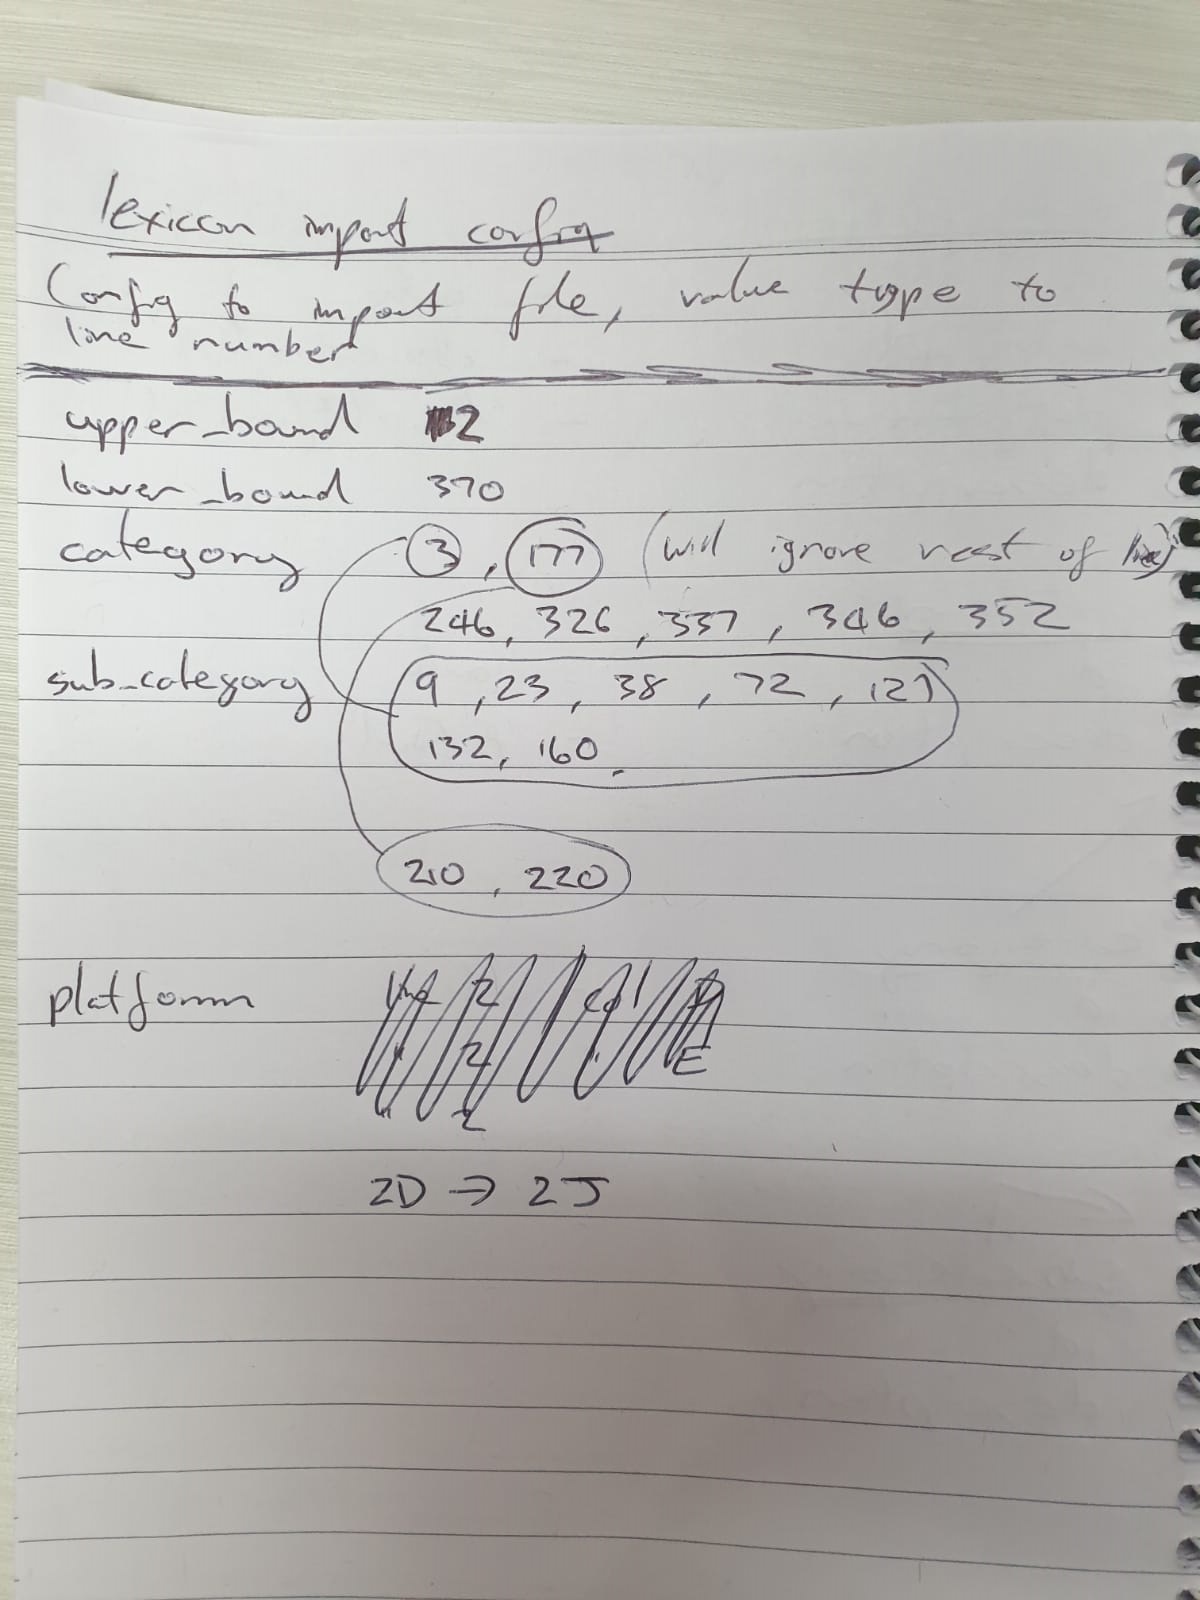 lexicon import config
Config to import file, value type to
line number
upper_bound 2
lower_bound 370
category 3, 177 (will ignore rest of line)
246, 326, 337, 346, 352
sub_category 9, 23, 38, 72, 127
132, 160,
210, 220
platform
2D → 2J